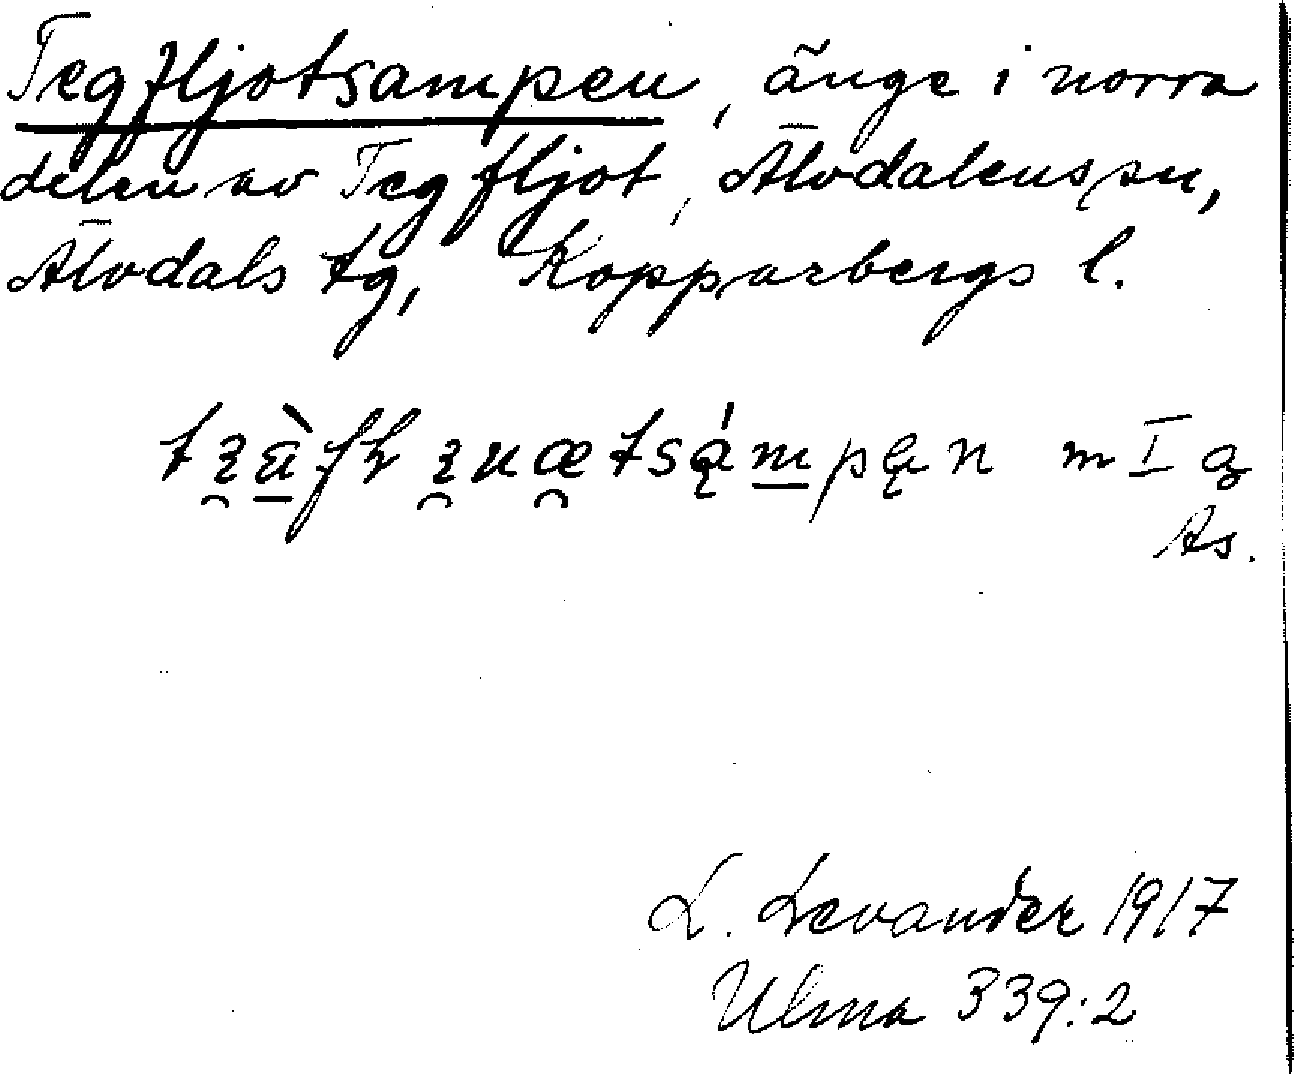 Tegfljotsampen, änge i norra
delen av Tegfljot, Älvdalens sn,
Älvdals tg, Kopparbergs l.
m I a
As.
L. Levander 1917
Ulma 339:2